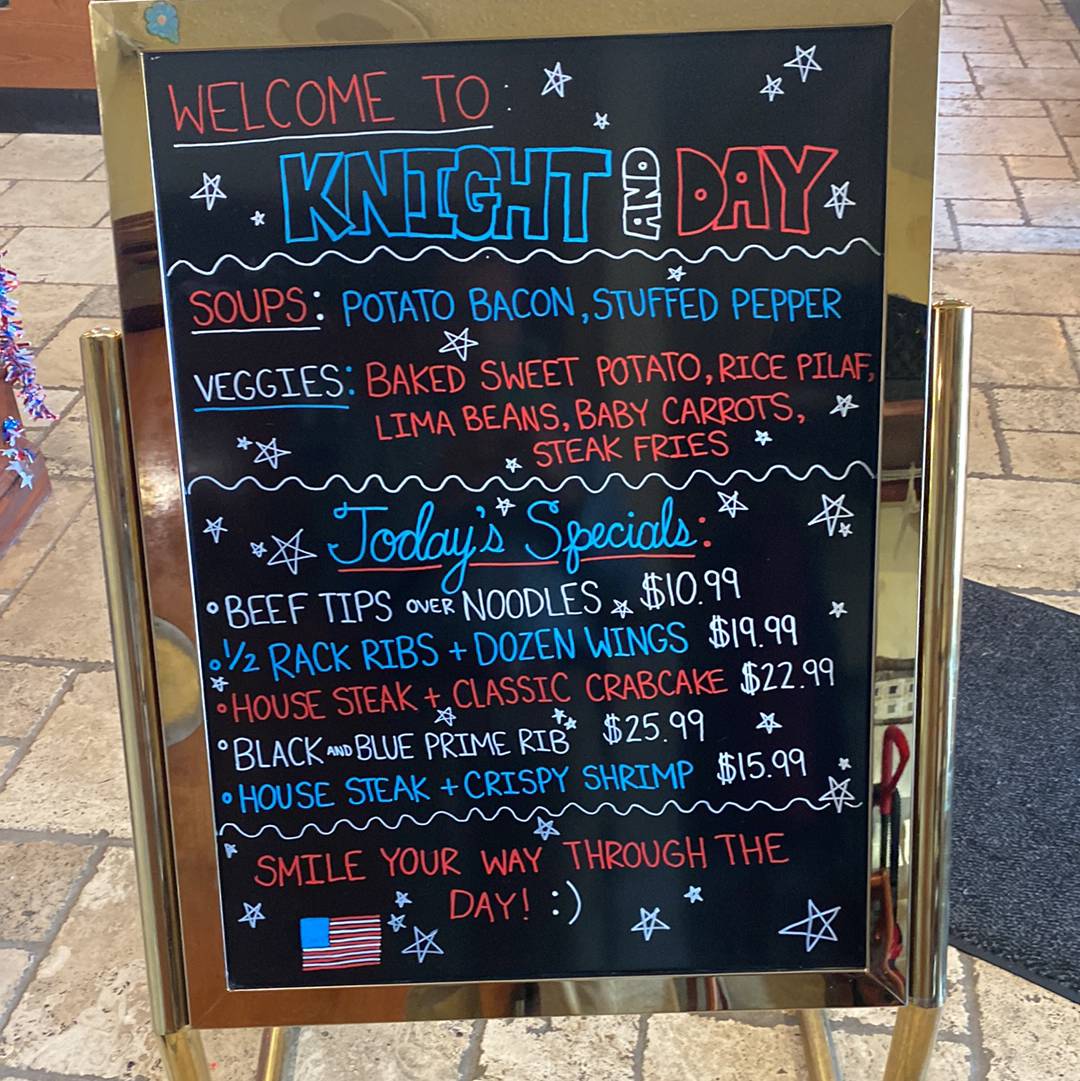 WELCOME TO:
KNIGHT AND DAY
SOUPS: POTATO BACON, STUFFED PEPPER
VEGGIES: BAKED SWEET POTATO, RICE PILAF,
LIMA BEANS, BABY CARROTS,
STEAK FRIES
Today's Specials:
• BEEF TIPS OVER NOODLES $10.99
• 1/2 RACK RIBS + DOZEN WINGS $19.99
• HOUSE STEAK + CLASSIC CRABCAKE $22.99
• BLACK AND BLUE PRIME RIB $25.99
• HOUSE STEAK + CRISPY SHRIMP $15.99
SMILE YOUR WAY THROUGH THE
DAY! :)